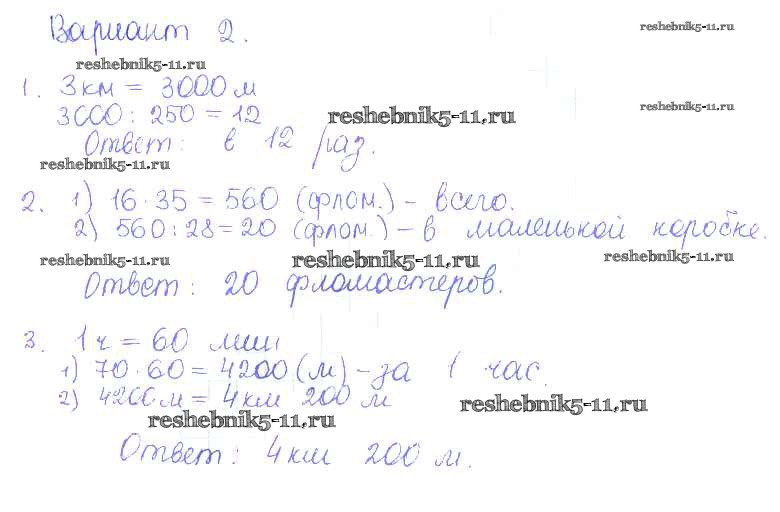 Вариант 2.
reshebnik5-11.ru
reshebnik5-11.ru
1. 3км = 3000 м
3000 : 250 = 12
reshebnik5-11.ru
reshebnik5-11.ru
Ответ: в 12 раз.
reshebnik5-11.ru
2. 1) 16 · 35 = 560 (флом.) - всего.
2) 560 : 28 = 20 (флом.) - в маленькой коробке.
reshebnik5-11.ru
reshebnik5-11.ru
reshebnik5-11.ru
Ответ: 20 фломастеров.
3. 1 ч = 60 мин
1) 70 · 60 = 4200 (м) - за 1 час.
2) 4200 м = 4 км 200 м
reshebnik5-11.ru
reshebnik5-11.ru
Ответ: 4 км 200 м.